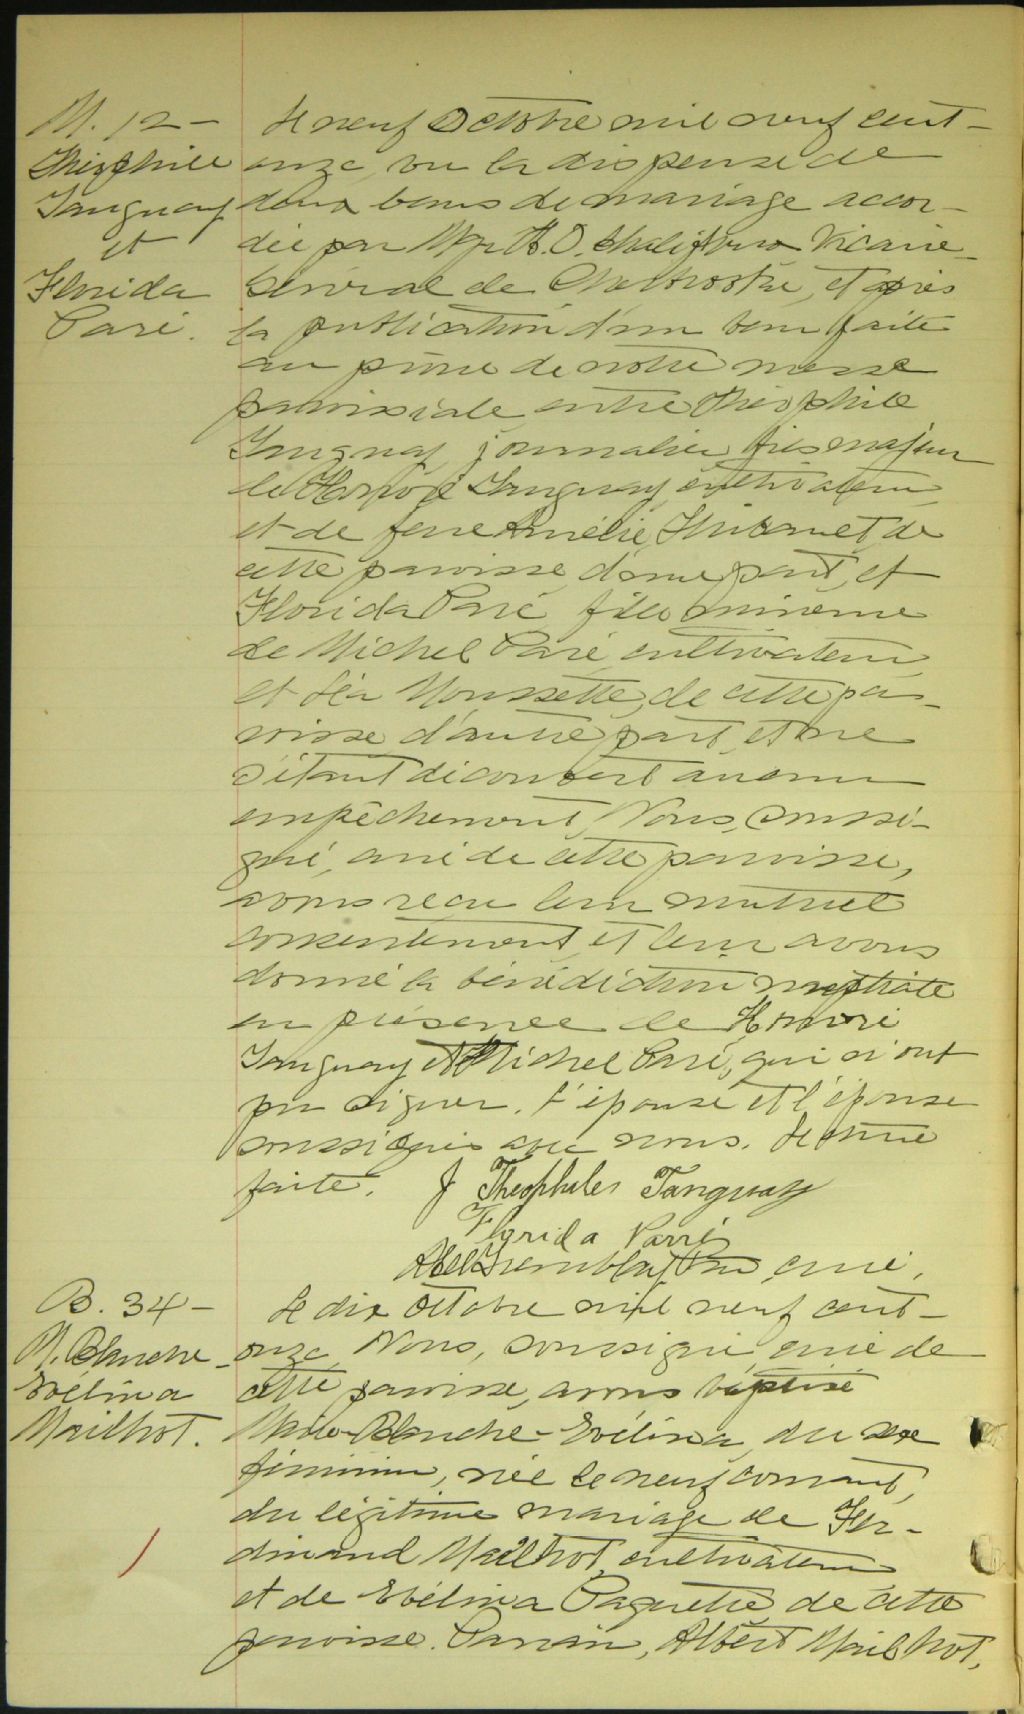 M. 12 -
Théophile
Tanguay
et
Florida
Paré.
Le neuf Octobre mil neuf cent-
onze, vu la dispense de
deux bans de mariage accor-
dée par Mgr H. O. Vicaire
Général de Sherbrooke, et après
la publication d'un ban faite
au prône de notre messe
paroissiale entre Théophile
Tanguay, journalier, fils majeur
de Tanguay, cultivateur,
et de feue Amélie de
cette paroisse, d'une part, et
Florida Paré, fille mineure
de Michel Paré, cultivateur,
et Léa Moussette, de cette pa-
roisse d'autre part, et ne
s'étant découvert aucun
empêchement, Nous, soussi-
gné, curé de cette paroisse,
avons reçu leur mutuel
consentement et leur avons
donné la bénédiction nuptiale
en présence de Honoré
Tanguay et Michel Paré, qui n'ont
pu signer. L'époux et l'épouse
soussignés avec nous. Lecture
faite. J Theophiles Tanguay
Florida Parré
Abel Tremblay Ptre curé.
B. 34 -
M. Blanche-
Evélina
Mailhot.
Le dix Octobre mil neuf cent-
onze Nous, soussigné, curé de
cette paroisse, avons baptisé
Marie-Blanche-Evélina, du sexe
féminin, née le neuf courant,
du légitime mariage de Fer-
dinand Mailhot, cultivateur
et de Evélina Paquette, de cette
paroisse. Parrain, Albert Mailhot,